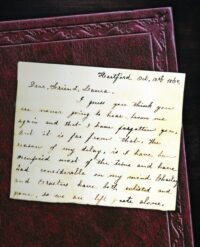 Hartford Oct. 12th 186
Dear Friend,
I guess you think you
are never going to hear from me
again and that I have forgotten you,
but it is far from that. The
reason of my delay, is I have been
occupied most of the time and have
had considerable on my mind. Charley
and have both enlisted and
gone, so we are left quite alone.